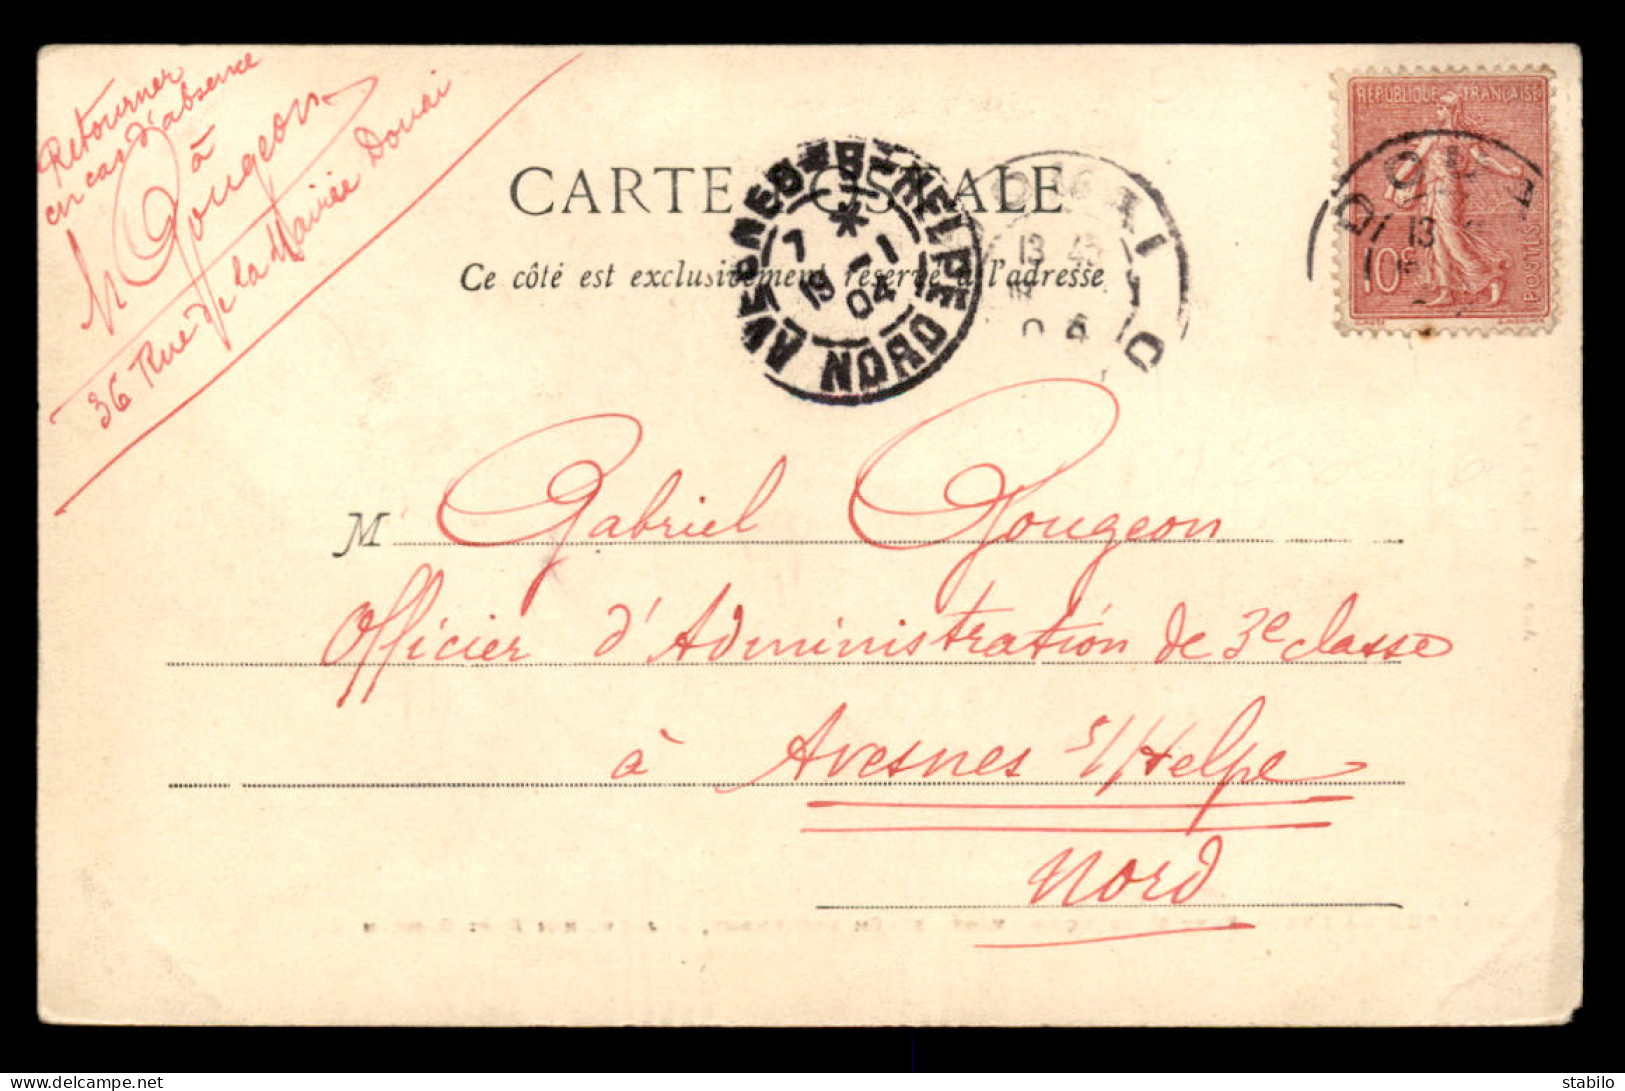 Retourner
en cas d'absence
à
Gougeon
36 Rue de la Mairie Douai
CARTE POSTALE
Ce côté est exclusivement réservé à l'adresse
AVESNES-S-HELPE
7 * 1
19 04
NORD
DOUAI
13 45
DOUA
13
REPUBLIQUE FRANÇAISE
10c
POSTES
M Gabriel Gougeon
Officier d'Administration de 3e classe
à Avesnes s/Helpe
Nord
stabilo